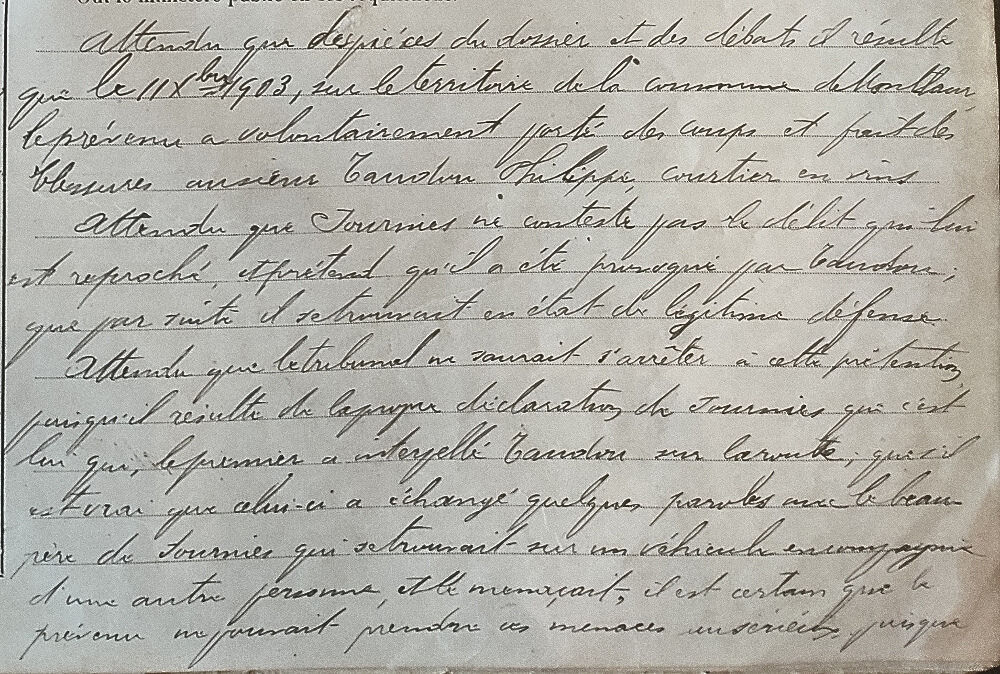 Ouï le ministère public en ses réquisitions.
Attendu que des pièces du dossier et des débats il résulte
que le 11 Xbre 1903, sur le territoire de la commune de Montlaur,
le prévenu a volontairement porté des coups et fait des
blessures au sieur Tandou Philippe, courtier en vins
Attendu que Journies ne conteste pas le délit qui lui
est reproché, et prétend qu'il a été provoqué par Tandou;
que par suite il se trouvait en état de légitime défense.
Attendu que le tribunal ne saurait s'arrêter à cette prétention,
puisqu'il résulte de la propre déclaration de Journies que c'est
lui qui, le premier a interpellé Tandou sur la route; que s'il
est vrai que celui-ci a échangé quelques paroles avec le beau
père de Journies qui se trouvait sur un véhicule en compagnie
d'une autre personne, et le menaçait, il est certain que le
prévenu ne pouvait prendre ces menaces au sérieux, puisque